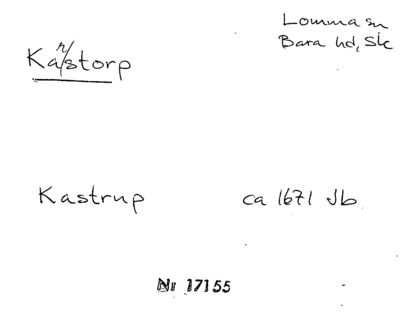 Lomma sn
Bara hd, Sk
Ka n/storp
Kastrup ca 1671 Jb
Nr 17155